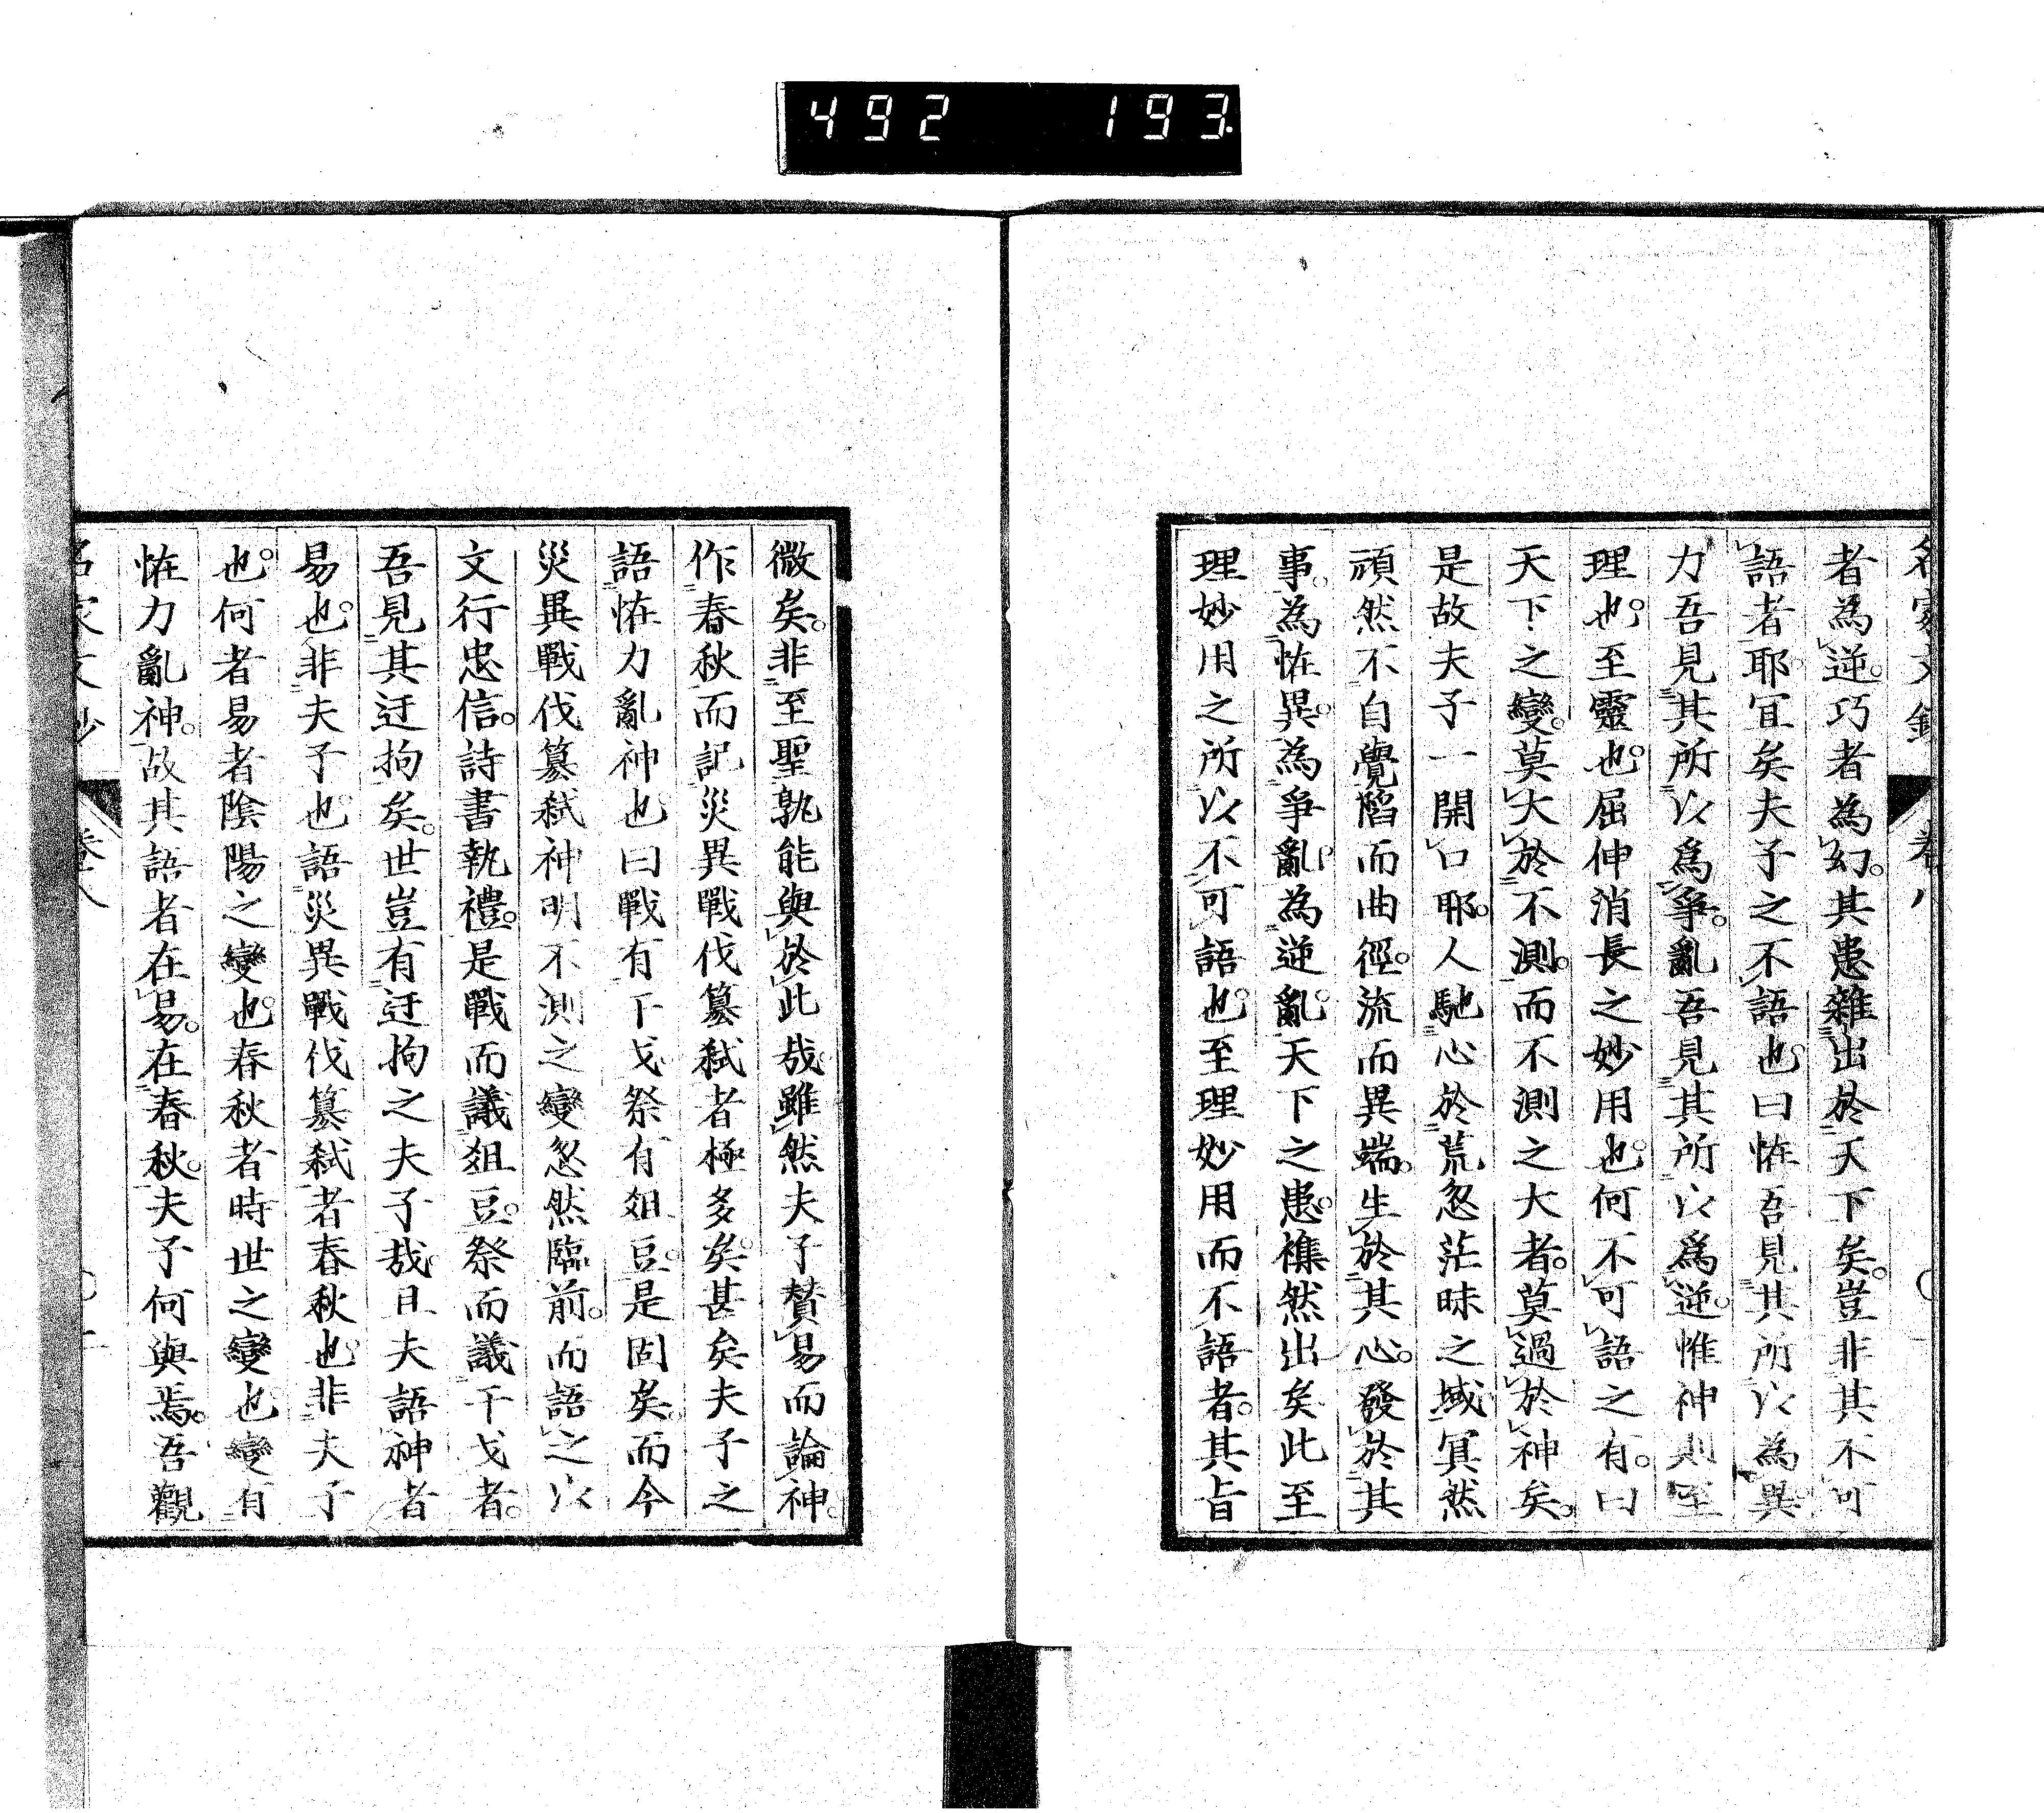 492 193
名家文鈔 卷八
者為逆。巧者為幻。其患雜出於天下矣。豈非其不可
語者耶。宜矣夫子之不語也。曰恠吾見其所以為異。
力吾見其所以為爭。亂吾見其所以為逆。惟神則至
理也。至靈也。屈伸消長之妙用也。何不可語之有。曰
天下之變。莫大於不測。而不測之大者。莫過於神矣。
是故夫子一開口耶。人馳心於荒忽茫昧之域。冥然
頑然不自覺陷而曲徑。流而異端。生於其心。發於其
事。為恠異。為爭亂。為逆亂。天下之患。襍然出矣此至
理妙用之所以不可語也。至理妙用而不語者。其旨
微矣。非至聖孰能與於此哉。雖然夫子贊易而論神。
作春秋而記災異戰伐簒弑者極多矣。甚矣夫子之
語恠力亂神也。曰戰有干戈。祭有俎豆。是固矣。而今
災異戰伐簒弑神明不測之變忽然臨前。而語之以
文行忠信。詩書執禮。是戰而議俎豆。祭而議干戈者。
吾見其迂拘矣。世豈有迂拘之夫子哉。且夫語神者
易也。非夫子也。語災異戰伐簒弑者春秋也。非夫子
也。何者易者陰陽之變也。春秋者時世之變也。變有
恠力亂神。故其語者在易。在春秋。夫子何與焉。吾觀
名家文鈔 卷八